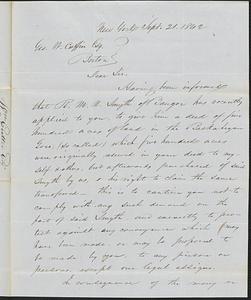 New York Sept. 21. 1842
Geo. W. Coffin Esq.
Boston
Dear Sir.
Having been informed
that R. M. N. Smyth of Bangor has recently
applied to you to give him a deed of five
hundred acres of land in the
Gore, (so called) which five hundred acres
were originally reserved in your deed to my
self &c but afterwards purchased of said
Smyth by us, & his right to claim the same
transferred — this is to caution you not to
comply with any such demand on the
part of said Smyth and earnestly to pro-
test against any conveyance which may
have been made or may be proposed to
be made by you, to any person or
persons, except our legal assigns.
In consequence of the money or